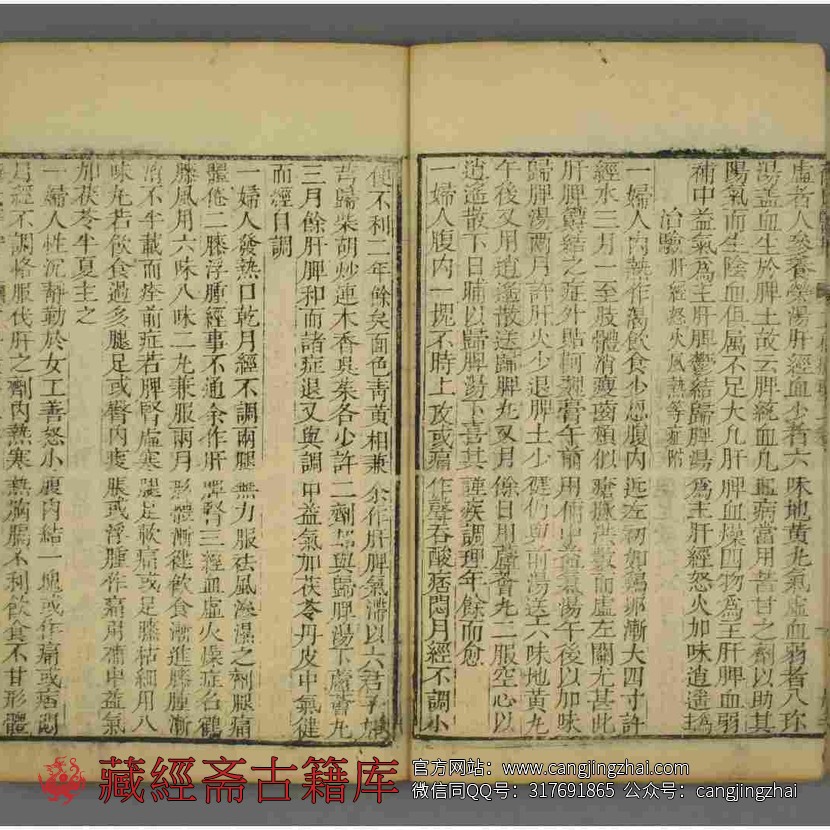 虛者人參養榮湯肝經血少者六味地黃丸氣虛血弱者八珎
湯蓋血生於脾土故云脾統血凡血病當用苦甘之劑以助其
陽氣而生陰血但屬不足大凡肝脾血燥四物為主肝脾血弱
補中益氣為主肝脾鬱結歸脾湯為主肝經怒火加味逍遙為
治驗肝經怒火風熱等症附
一婦人內熱作渴飲食少思腹內近左初如鷄卵漸大四寸許
經水三月一至肢體消瘦齒頰似瘡脉洪數而虛左關尤甚此
肝脾鬱結之症外貼阿魏膏午前用補中益氣湯午後以加味
歸脾湯兩月許肝火少退脾土少健仍與前湯送六味地黃丸
午後又用逍遙散送歸脾丸又月餘日用蘆薈丸二服空心以
逍遙散下日晡以歸脾湯下喜其謹疾調理年餘而愈
一婦人腹內一塊不時上攻或痛作聲吞酸痞悶月經不調小
便不利二年餘矣面色青黃相兼余作肝脾氣滯以六君子加
芎歸柴胡炒連木香吳茱各少許二劑却與歸脾湯下蘆薈丸
三月餘肝脾和而諸症退又與調中益氣加茯苓丹皮中氣健
而經自調
一婦人發熱口乾月經不調兩腿無力服祛風滲濕之劑腿痛
體倦二膝浮腫經事不通余作肝脾腎三經血虛火燥症名鶴
膝風用六味八味二丸兼服兩月形體漸健飲食漸進膝腫漸
消不半載而痊前症若脾腎虛寒腿足軟痛或足膝枯細用八
味丸若飲食過多腿足或臀內痠脹或浮腫作痛用補中益氣
加茯苓半夏主之
一婦人性沉靜勤於女工善怒小腹內結一塊或作痛或痞悶
月經不調恪服伐肝之劑內熱寒熱胸膈不利飲食不甘形體
藏經斋古籍库
官方网站：www.cangjingzhai.com
微信同QQ号：317691865 公众号：cangjingzhai